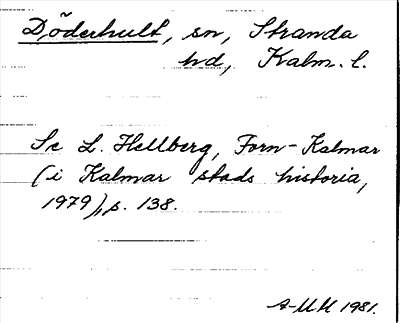 Döderhult, sn, Stranda
hd, Kalm. l.
Se L. Hellberg, Forn-Kalmar
(i Kalmar stads historia,
1979), s. 138.
A-MH 1981.